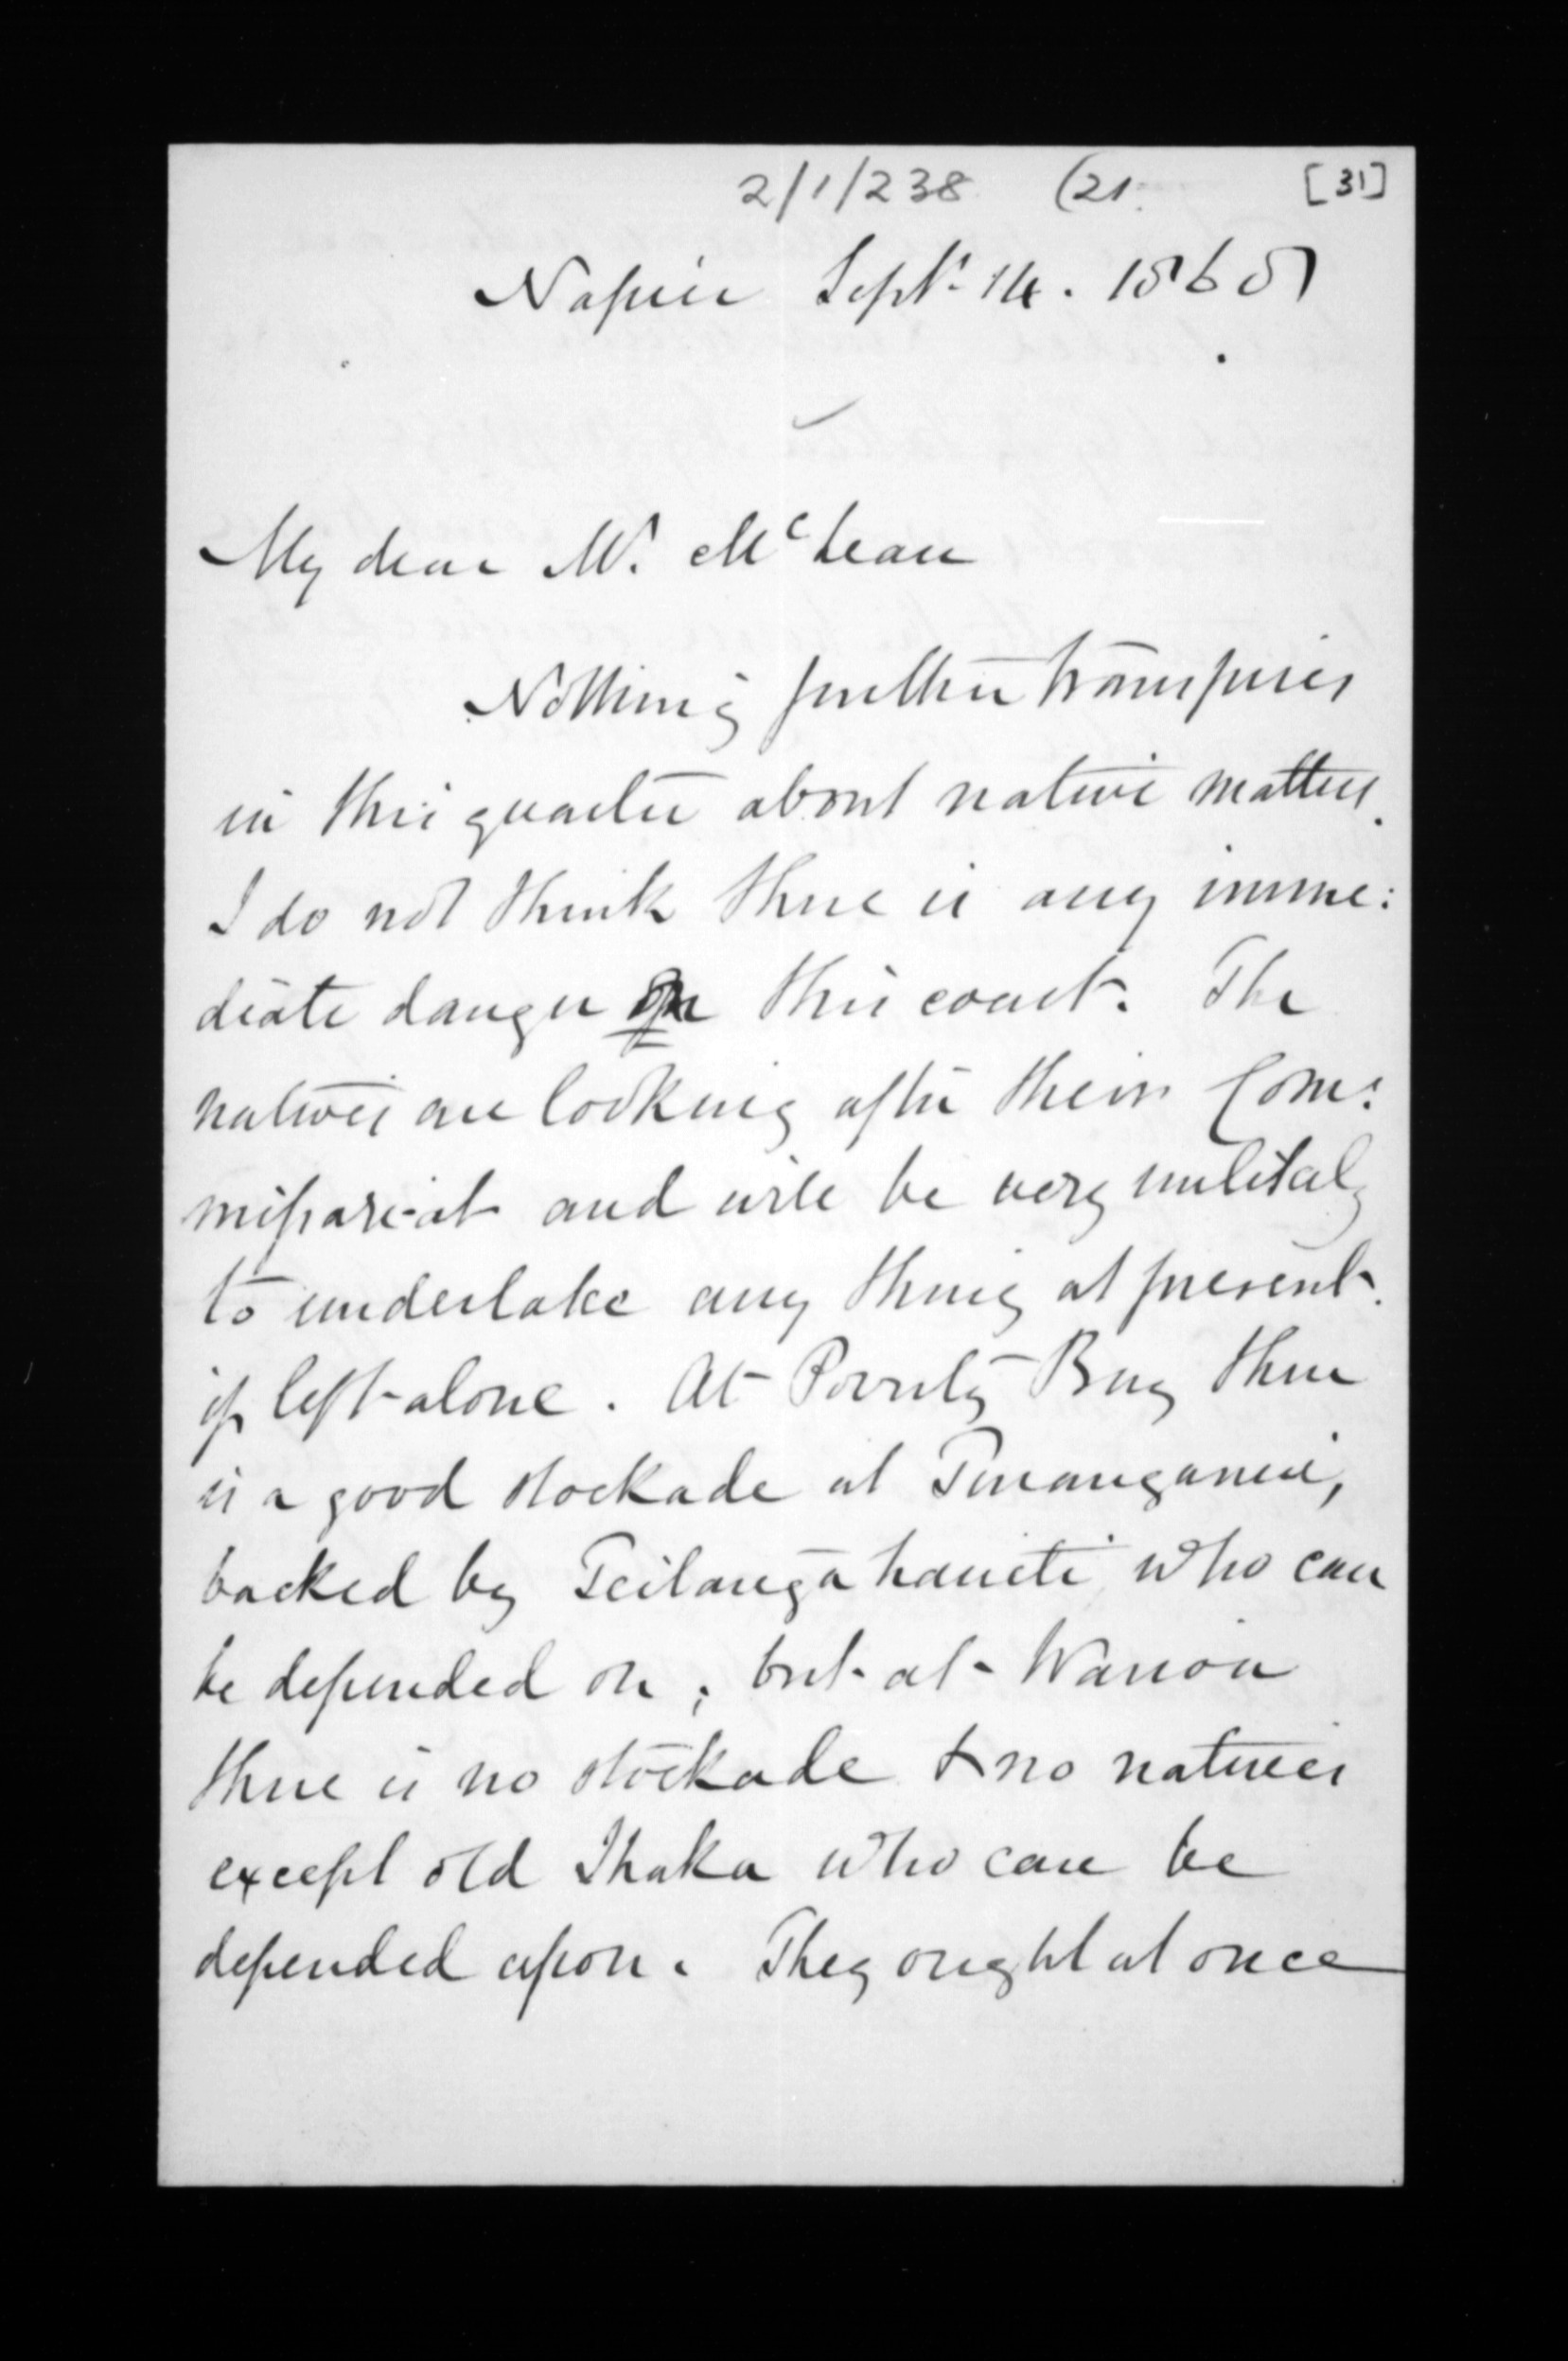 2/1/238 (21. [31]
Napier Sept. 14. 1868
My dear Mr. McLean
Nothing further transpires
in this quarter about native matters.
I do not think there is any imme:
diate danger on this coast. The
natives are looking after their Com:
missariat and will be very unlikely
to undertake any thing at present.
if left alone. At Poverty Bay there
is a good stockade at Turanganui,
backed by who can
be depended on; but at Wairoa
there is no stockade & no natives
except old Ihaka who can be
depended upon. They ought at once